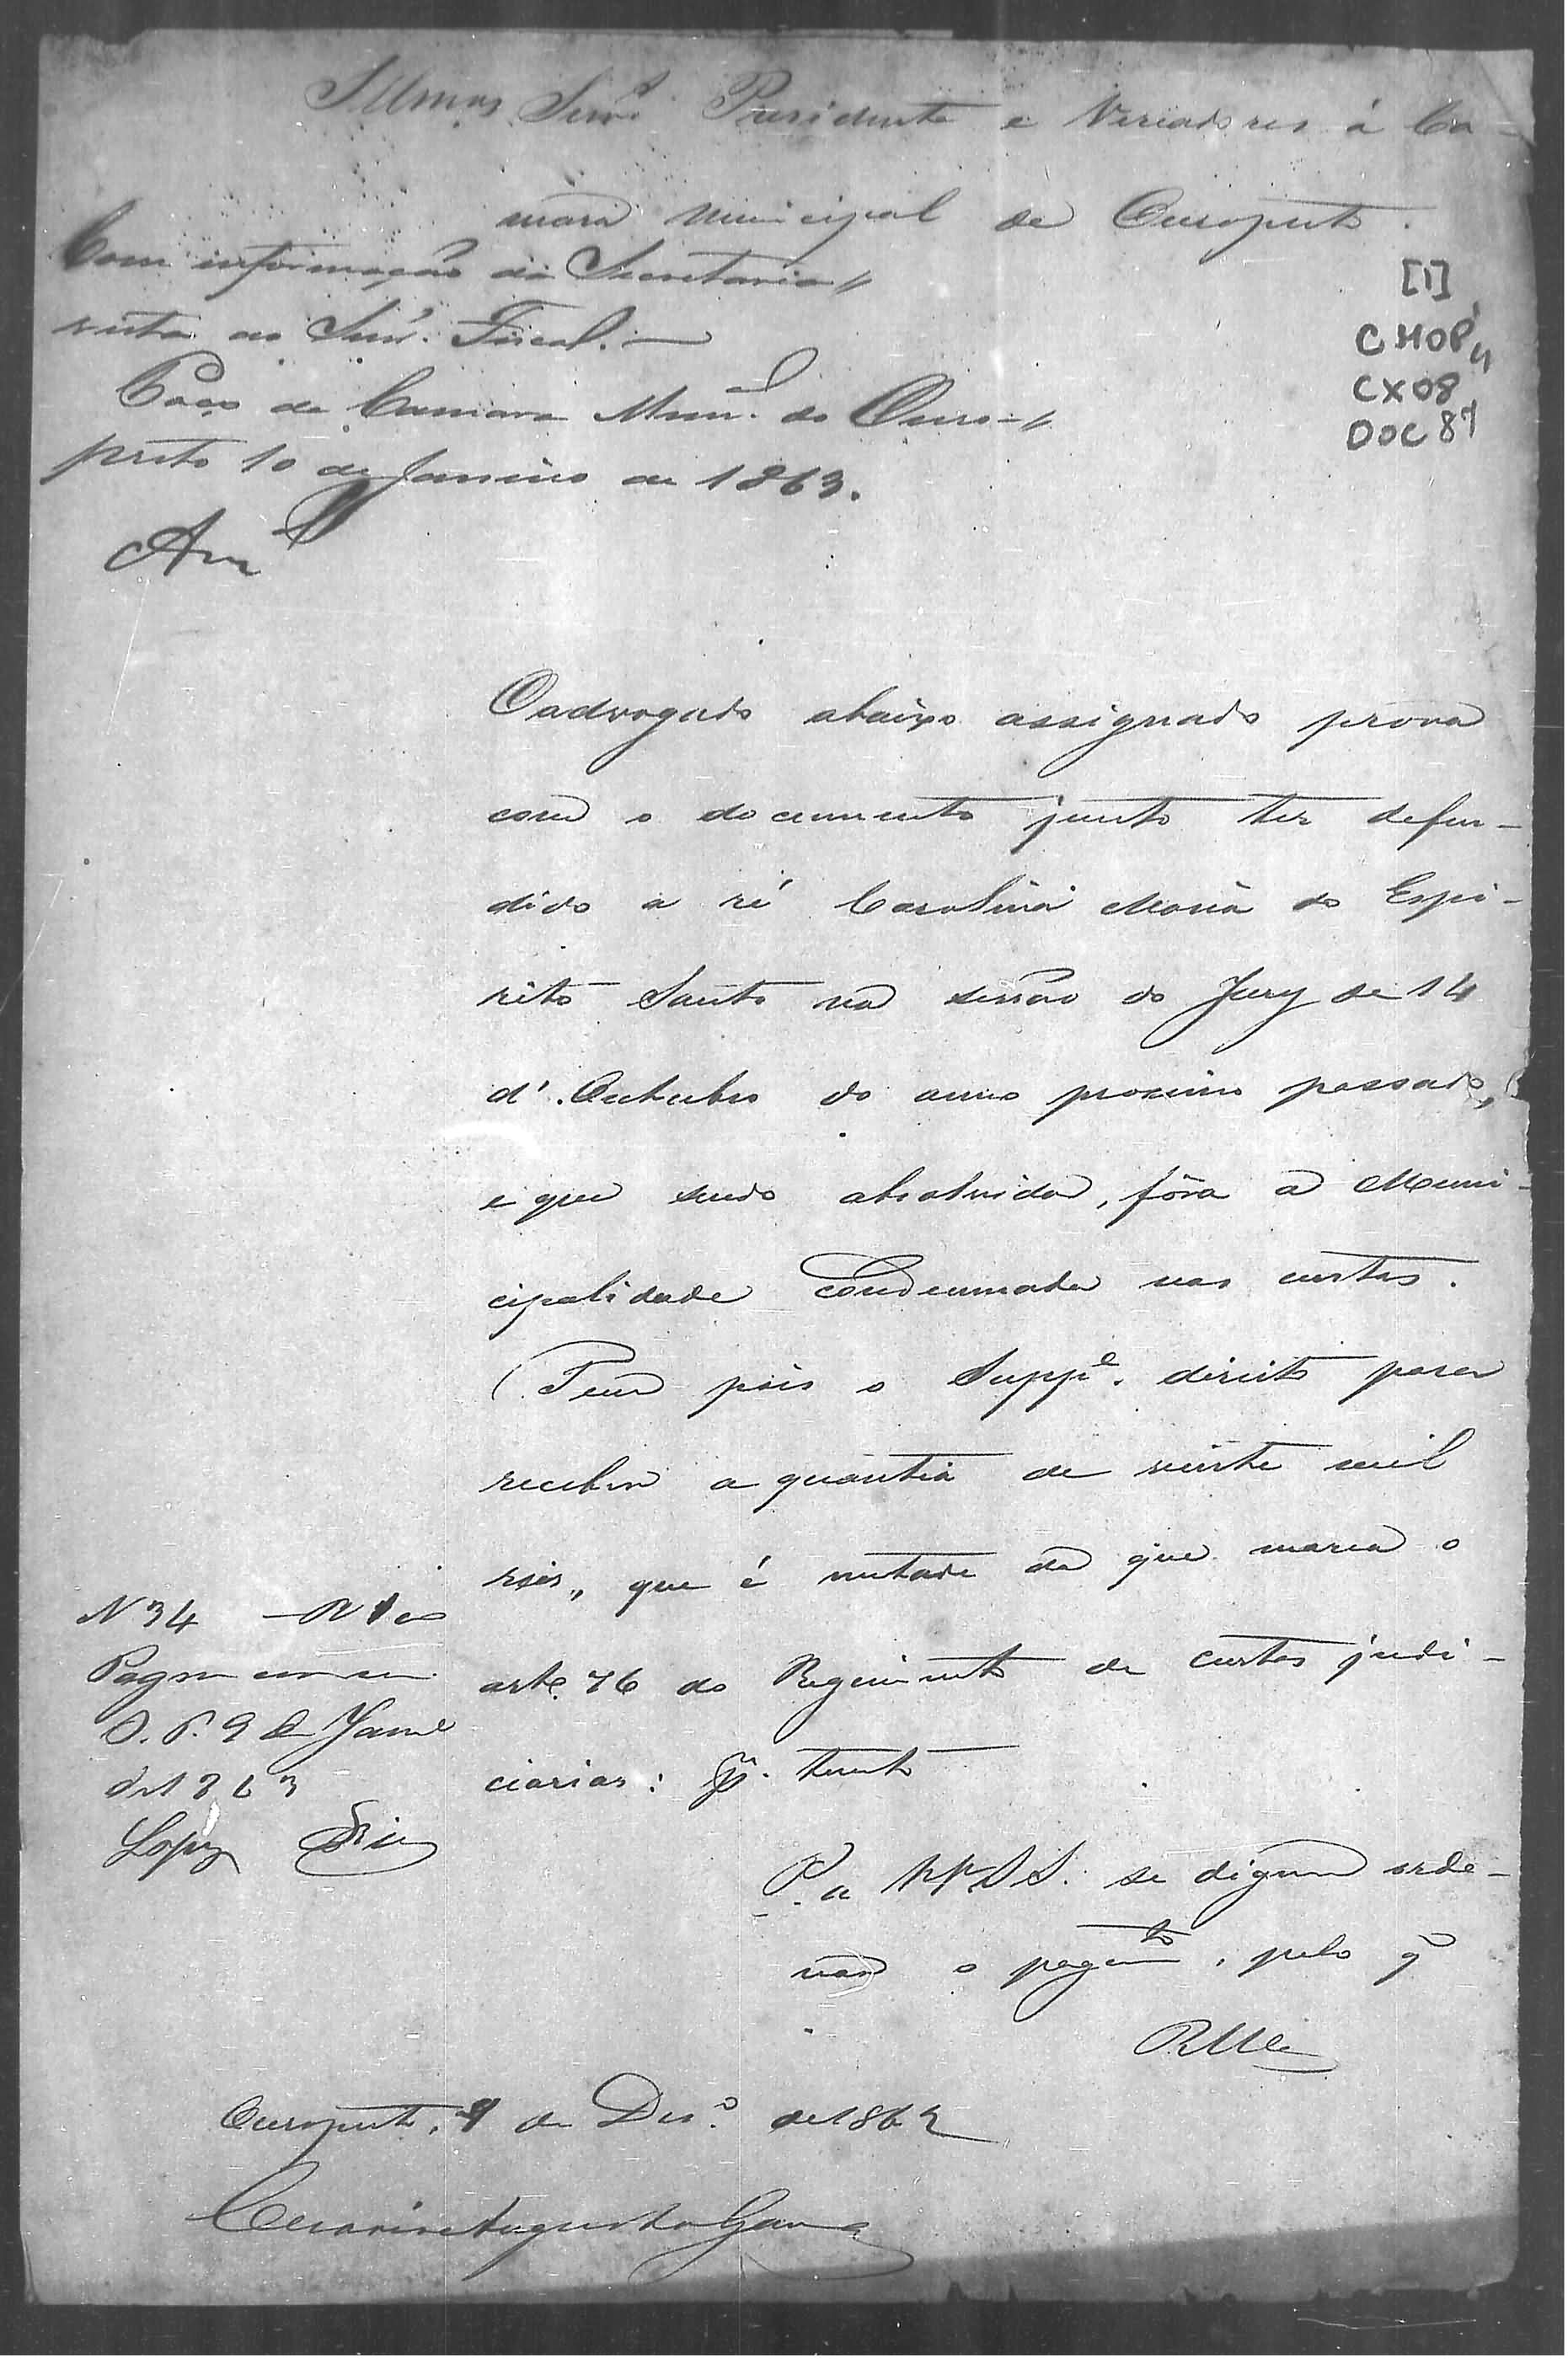 Illmos Senrs Presidente e Vereadores á Ca-
mara Municipal de Ouropreto.
Com informação da Secretaria,,
volta ao Senr. Fiscal.—
Paço da Camara Munal. do Ouro-,,
preto 10 de Janeiro de 1863.
[1]
CMOP,
CX08
DOC 87
O advogado abaixo assignado prova
com o documento junto ter defen-
dido a ré Carolina Maria do Espi-
rito Santo na sessão do Jury de 14
d'Outubro do anno proximo passado,
e que sendo absolvida, fôra a Muni-
cipalidade condemnada nas custas.
Tem pois o Suppe. direito para
receber a quantia de vinte mil
reis,, que é metade do que marca o
arte. 76 do Regimento de custas judi-
ciarias: pr. tanto
P. a VVSS. se dignem orde-
nar o pagamto, pelo q̃
RMce
N 34
O. P. 9 de Janro
de 1863
Lopes Dias
Ouropreto, 9 de Des.o de 1862
Augusto Gama